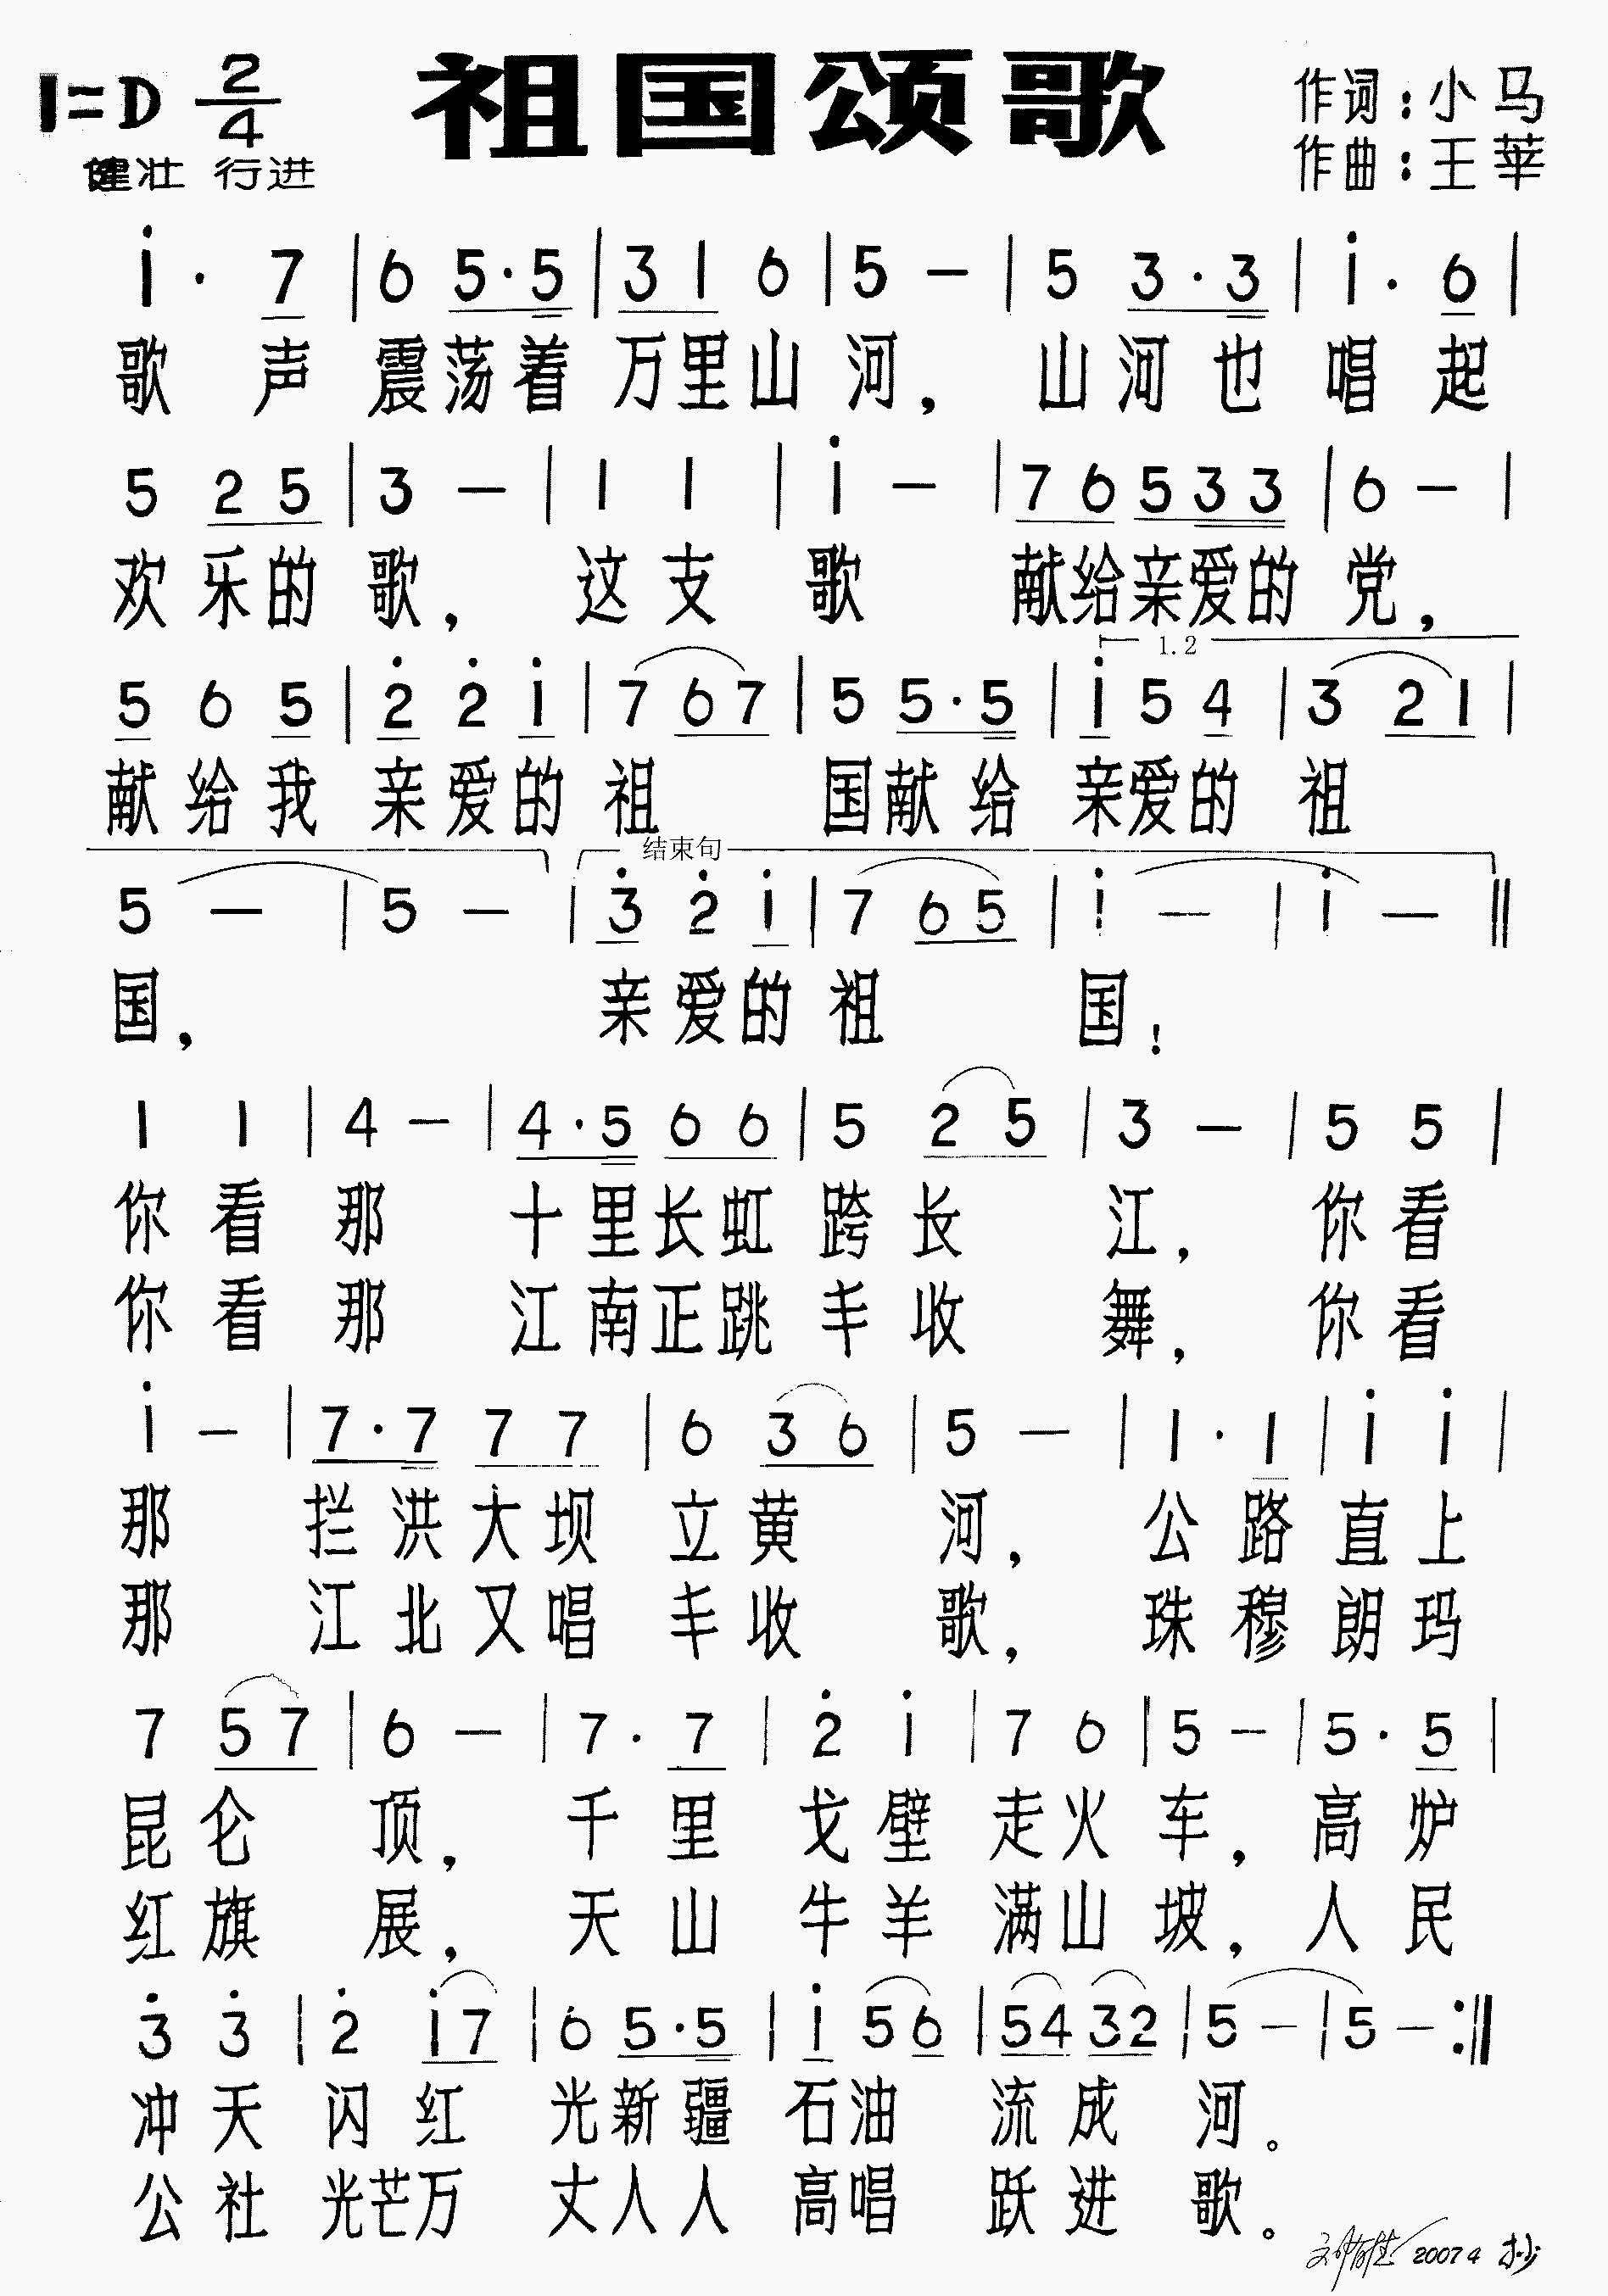 祖国颂歌
1=D 2/4
健壮 行进
作词:小马
作曲:王莘
i· 7 | 6 5·5 | 3 1 6 | 5 - | 5 3·3 | i· 6 |
歌 声 震荡着 万里山 河, 山 河 也 唱 起
5 2 5 | 3 - | 1 1 | i - | 7 6 5 3 3 | 6 - |
欢 乐的 歌, 这 支 歌 献给亲爱的 党,
1.2
5 6 5 | 2̇ 2̇ i | 7 6 7 | 5 5·5 | i 5 4 | 3 2 1 |
献 给 我 亲 爱 的 祖 国献 给 亲爱的 祖
结束句
5 - | 5 - | 3̇ 2̇ i | 7 6 5 | i - | i - ‖
国, 亲 爱 的 祖 国!
1 1 | 4 - | 4·5 6 6 | 5 2 5 | 3 - | 5 5 |
你 看 那 十 里 长 虹 跨 长 江, 你 看
你 看 那 江 南 正 跳 丰 收 舞, 你 看
i - | 7·7 7 7 | 6 3 6 | 5 - | 1· 1 | i i |
那 拦 洪 大 坝 立 黄 河, 公 路 直 上
那 江 北 又 唱 丰 收 歌, 珠 穆 朗 玛
7 5 7 | 6 - | 7· 7 | 2̇ i | 7 6 | 5 - | 5· 5 |
昆 仑 顶, 千 里 戈 壁 走 火 车, 高 炉
红 旗 展, 天 山 牛 羊 满 山 坡, 人 民
3̇ 3̇ | 2̇ i 7 | 6 5·5 | i 5 6 | 5 4 3 2 | 5 - | 5 - :‖
冲 天 闪 红 光新 疆 石 油 流 成 河。
公 社 光芒万 丈人 人 高 唱 跃 进 歌。
2007 4 抄